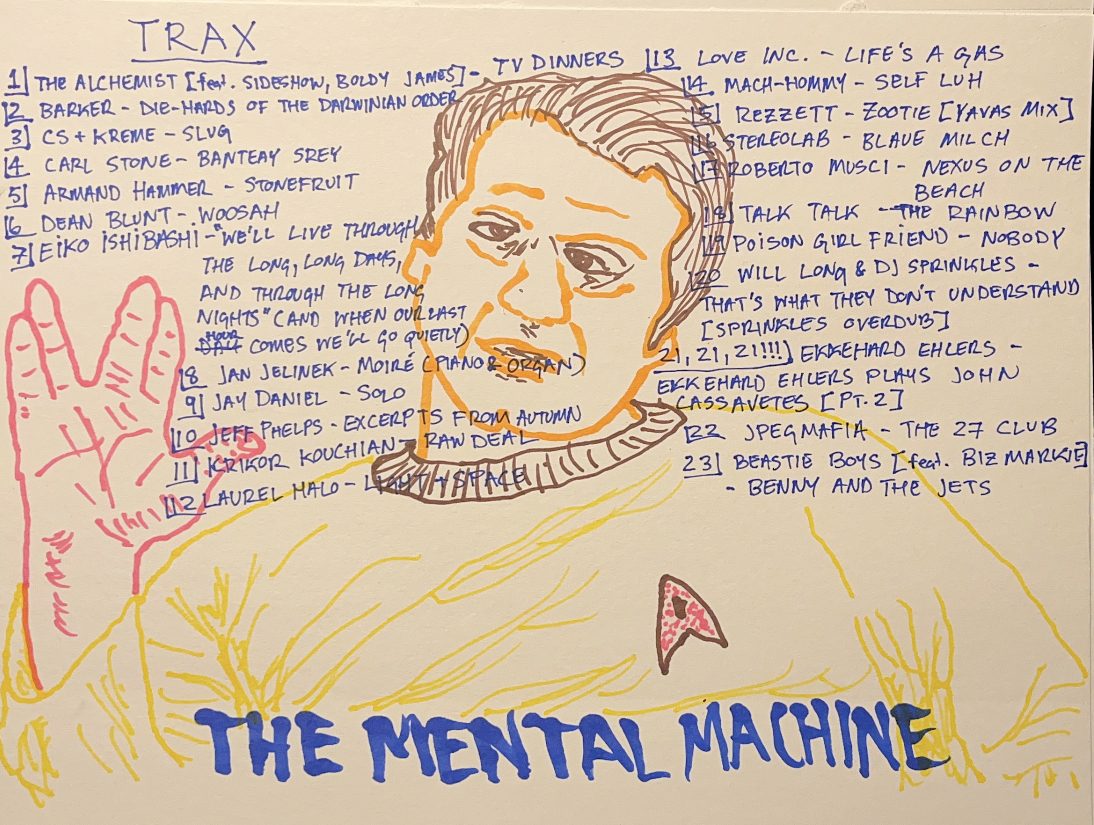 TRAX
1] THE ALCHEMIST [feat. SIDESHOW, BOLDY JAMES] - TV DINNERS
2] BARKER - DIE-HARDS OF THE DARWINIAN ORDER
3] CS + KREME - SLUG
4] CARL STONE - BANTEAY SREY
5] ARMAND HAMMER - STONEFRUIT
6] DEAN BLUNT - WOOSAH
7] EIKO ISHIBASHI - "WE'LL LIVE THROUGH
THE LONG, LONG DAYS,
AND THROUGH THE LONG
NIGHTS" (AND WHEN OUR LAST
HOUR
DAY COMES WE'LL GO QUIETLY)
8] JAN JELINEK - MOIRÉ (PIANO & ORGAN)
9] JAY DANIEL - SOLO
10] JEFF PHELPS - EXCERPTS FROM AUTUMN
11] KRIKOR KOUCHIAN - RAW DEAL
12] LAUREL HALO - LIGHT + SPACE
13] LOVE INC. - LIFE'S A GAS
14] MACH-HOMMY - SELF LUH
15] REZZETT - ZOOTIE [YAVAS MIX]
16] STEREOLAB - BLAUE MILCH
17] ROBERTO MUSCI - NEXUS ON THE
BEACH
18] TALK TALK - THE RAINBOW
19] POISON GIRL FRIEND - NOBODY
20] WILL LONG & DJ SPRINKLES -
THAT'S WHAT THEY DON'T UNDERSTAND
[SPRINKLES OVERDUB]
21, 21, 21!!!] EKKEHARD EHLERS -
EKKEHARD EHLERS PLAYS JOHN
CASSAVETES [PT. 2]
22 JPEGMAFIA - THE 27 CLUB
23] BEASTIE BOYS [feat. BIZ MARKIE]
- BENNY AND THE JETS
THE MENTAL MACHINE